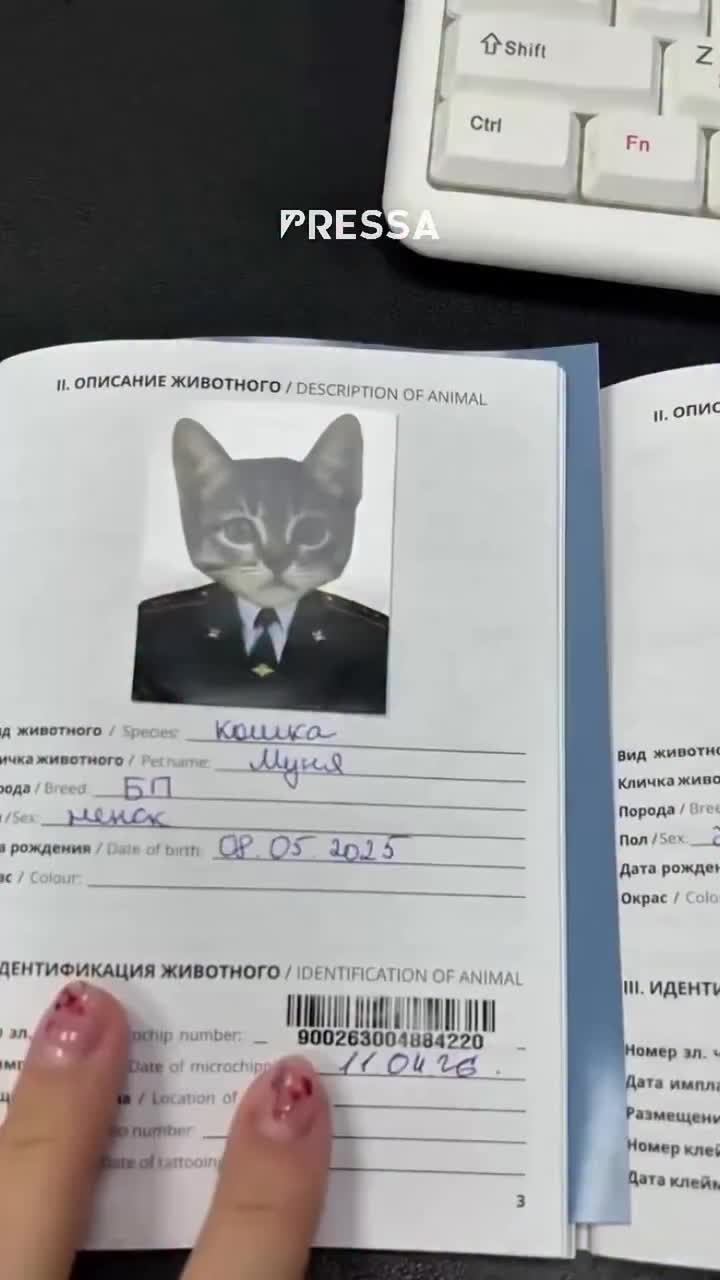 Shift
Z
Ctrl
Fn
PRESSA
II. ОПИСАНИЕ ЖИВОТНОГО / DESCRIPTION OF ANIMAL
д животного / Species: кошка
ичка животного / Pet name: Муня
ода / Breed: БП
/ Sex: женск
а рождения / Date of birth: 08.05.2025
ас / Colour:
ДЕНТИФИКАЦИЯ ЖИВОТНОГО / IDENTIFICATION OF ANIMAL
эл. ochip number:
900263004884220
Date of microchipp 11 04 26.
а / Location of
o number:
Date of tattooing
3
II. ОПИС
Вид животно
Кличка живо
Порода / Bree
Пол / Sex:
Дата рожден
Окрас / Colo
III. ИДЕНТИ
Номер эл. ч
Дата импла
Размещени
Номер клей
Дата клейм